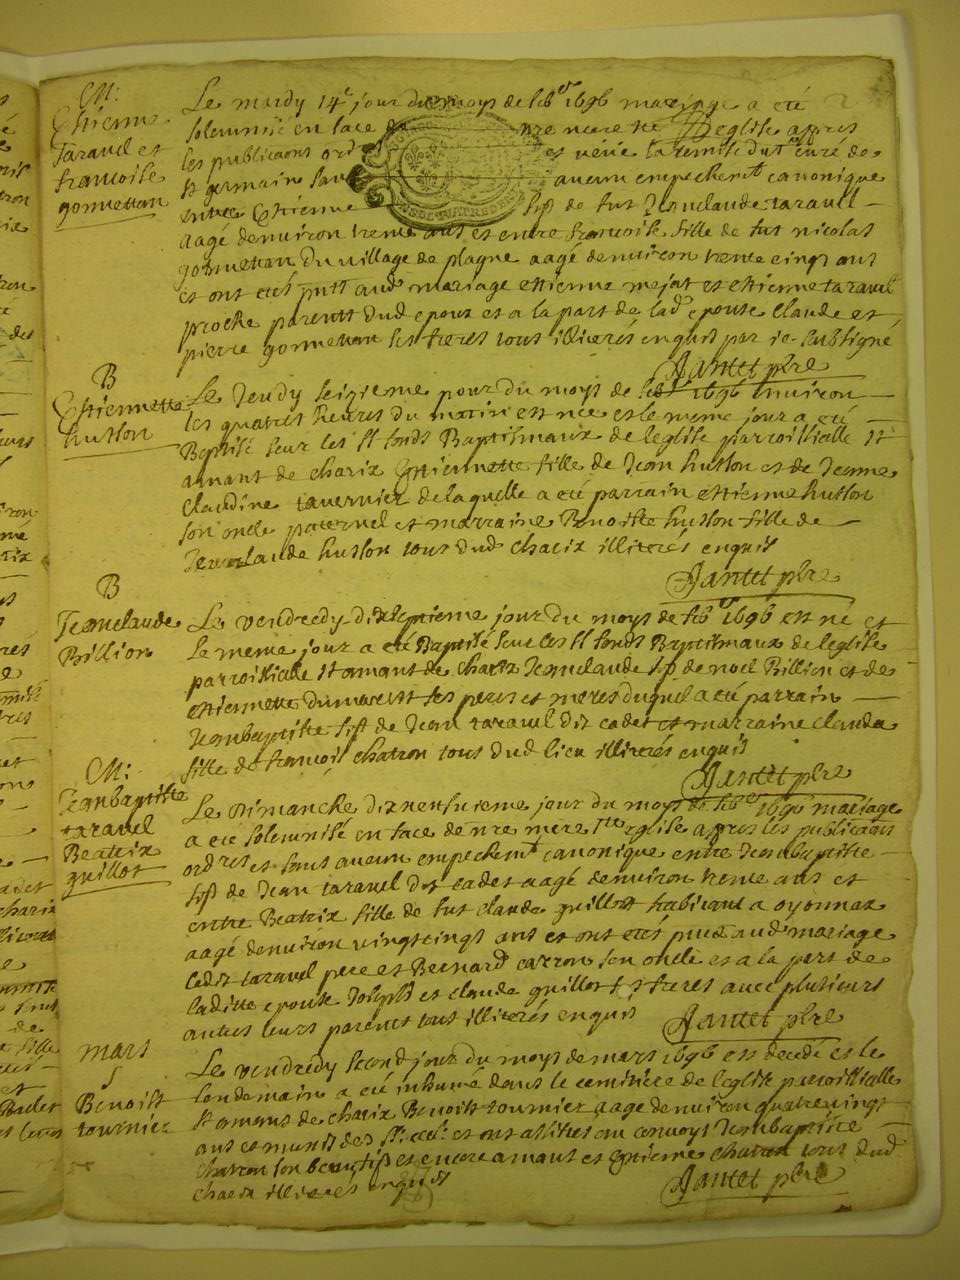 M:
Estienne
Taravel et
francoise
gonnettan
Le mardy 14e jour du moys de feber 1696 mariage a eté
solemnisé en face de nre mere ste Eglise apres
les publicaons ord et veüe la remise du sr curé de
st germain sans aucun empechemt canonique
entre Estienne fils de fut Jeanclaude taravel
aagé denuiron trente ans et entre francoise fille de fut nicolas
gonnettan du village de plagne aagé denuiron trente cinq ans
et ont etés pntt aud mariage estienne mejat et estienne taravel
proche parentt dud epoux et a la part de lad epouse Claude et
pierre gonnettan ses freres tous illiterés enquis par je soubsigné
Jantet pbre
B
Estiennette
husson
Le Jeudy seizieme jour du moys de feber 1696 enuiron
les quatres heures du matin est née et le meme jour a eté
Baptisé seur les ss fonds Baptismaux de leglise parroissialle st
amant de charix Estiennette fille de Jean husson et de Jeanne
Claudine tavernier de laquelle a eté parrain estienne husson
son oncle paternel et marraine Benoitte husson fille de
Jeanclaude husson tous dud charix illiterés enquis
Jantet pbre
B
Jeanclaude
Billion
Le vendredy dixseptieme jour du moys de feber 1696 est né et
le meme jour a eté Baptisé seur les ss fonds Baptismaux de leglise
parroissialle st amant de charix Jeanclaude fils de noel Billion et de
estiennette dumarest ses peres et meres duquel a eté parrain
Jeanbaptiste fils de Jean taravel dit cadet et marraine clauda
fille de francois chatron tous dud lieu illiterés enquis
Jantet pbre
M:
Jeanbaptiste
taravel
Beatrix
guillot
Le Dimanche dixneufuieme jour du moys de feber 1696 mariage
a eté solemnisé en face de nre mere ste eglise apres les publicaons
ordres et sans aucun empechemt canonique entre Jeanbaptiste
fils de Jean taravel dit cadet aagé denuiron trente ans et
entre Beatrix fille de fut claude guillot habitant a oyonnax
aagé denuiron vingtcinq ans et ont etés pntz aud mariage
ledit taravel pere et Bernard carron son oncle et a la part de
laditte epouse Joseph et claude guillot ss freres avec plusieurs
autres leurs parents tous illiterés enquis
Jantet pbre
mars
S
Benoitt
tournier
Le vendredy second jour du moys de mars 1696 est decedé et le
lendemain a eté inhumé dans le cemitiere de leglise parroissialle
st amans de charix Benoitt tournier aagé denuiron quatrevingt
ans et munis des st et ont assistés au convoys Jeanbaptiste
chatron son beaufils et encore amant et Estienne chatron tous dud
charix illiterés enquis
Jantet pbre